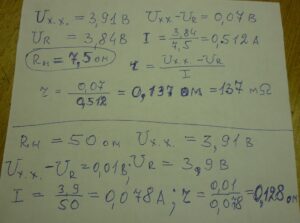 Uх.х. = 3,91 в Uхх - UR = 0,07 в
UR = 3,84 в I = 3,84 / 7,5 = 0,512 А
Rн = 7,5 ом r = Uхх - UR / I
r = 0,07 / 0,512 = 0,137 ом = 137 mΩ
Rн = 50 ом Uх.х. = 3,91 в
Uх.х. - UR = 0,01 в; UR = 3,9 в
I = 3,9 / 50 = 0,078 А; r = 0,01 / 0,078 = 0,128 ом